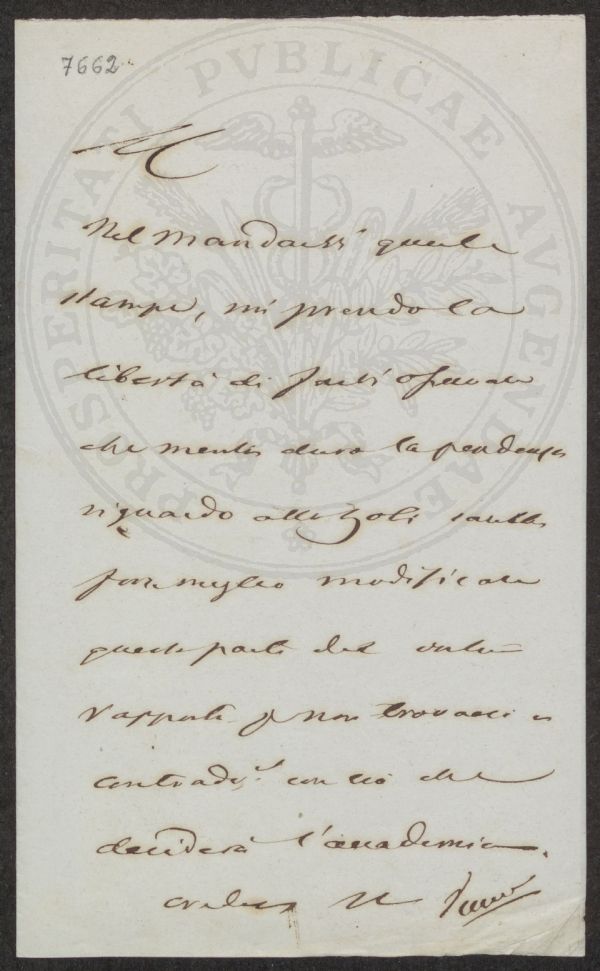 7662
PROSPERITATI PVBLICAE AVGENDAE
Nel mandarvi queste
stampe, mi prendo la
libertà di farvi osservare
che mentre dura la pendenza
riguardo alli Zolfi sarebbe
forse meglio modificare
questa parte del vostro
rapporto p non trovarci in
contradz.e con ciò che
deciderà l'accademia.